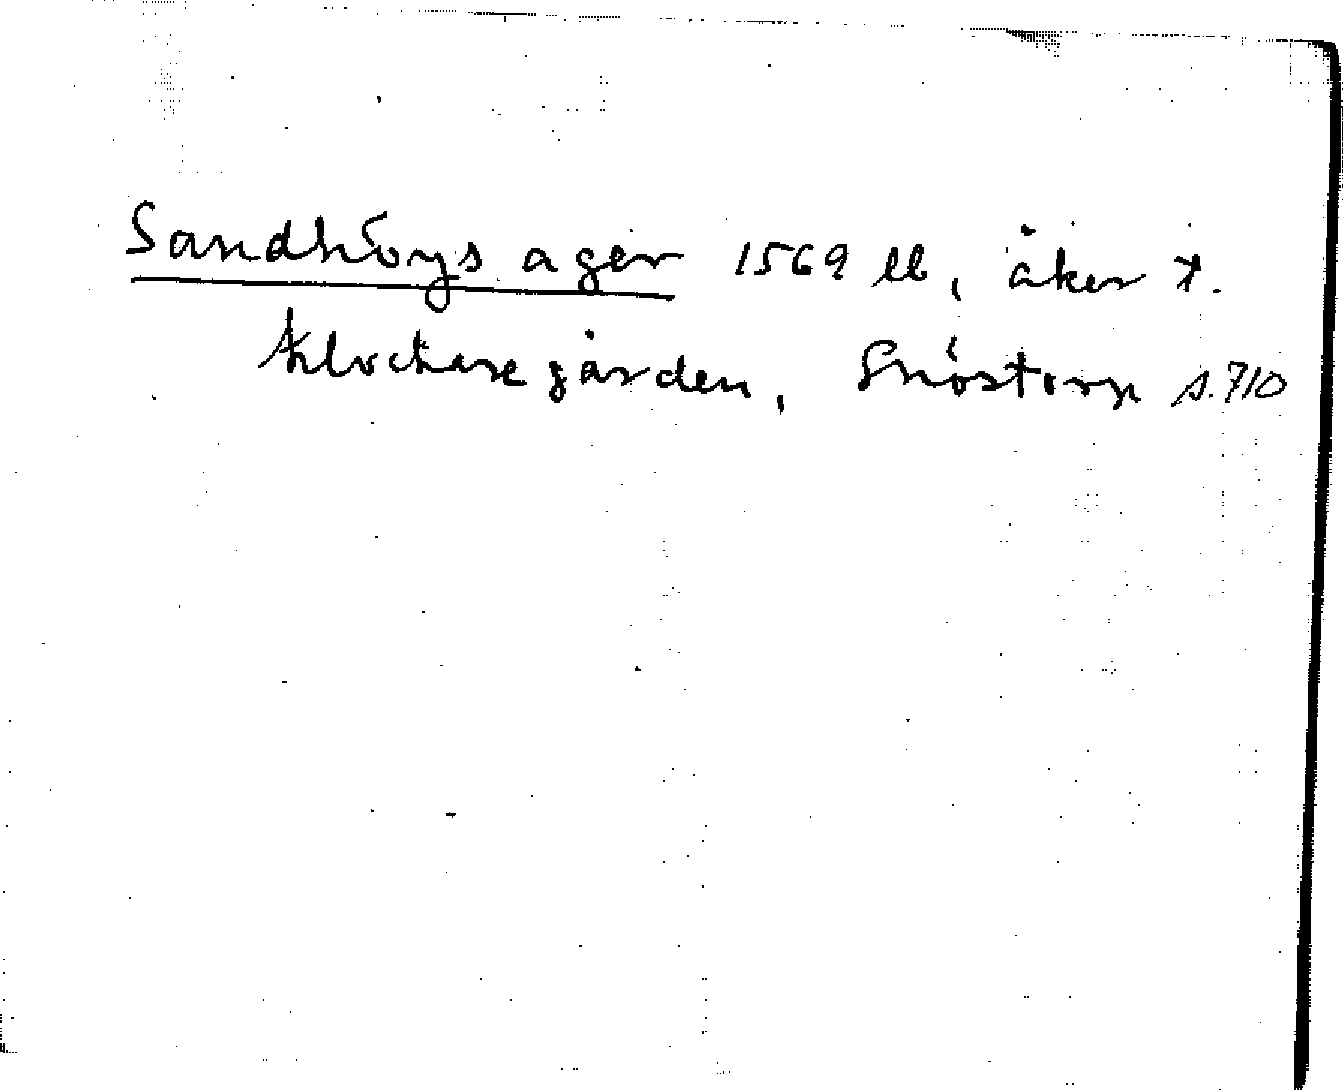 Sandhöys ager 1569 lb, åker t.
Klockaregården, Snöstorp s. 710